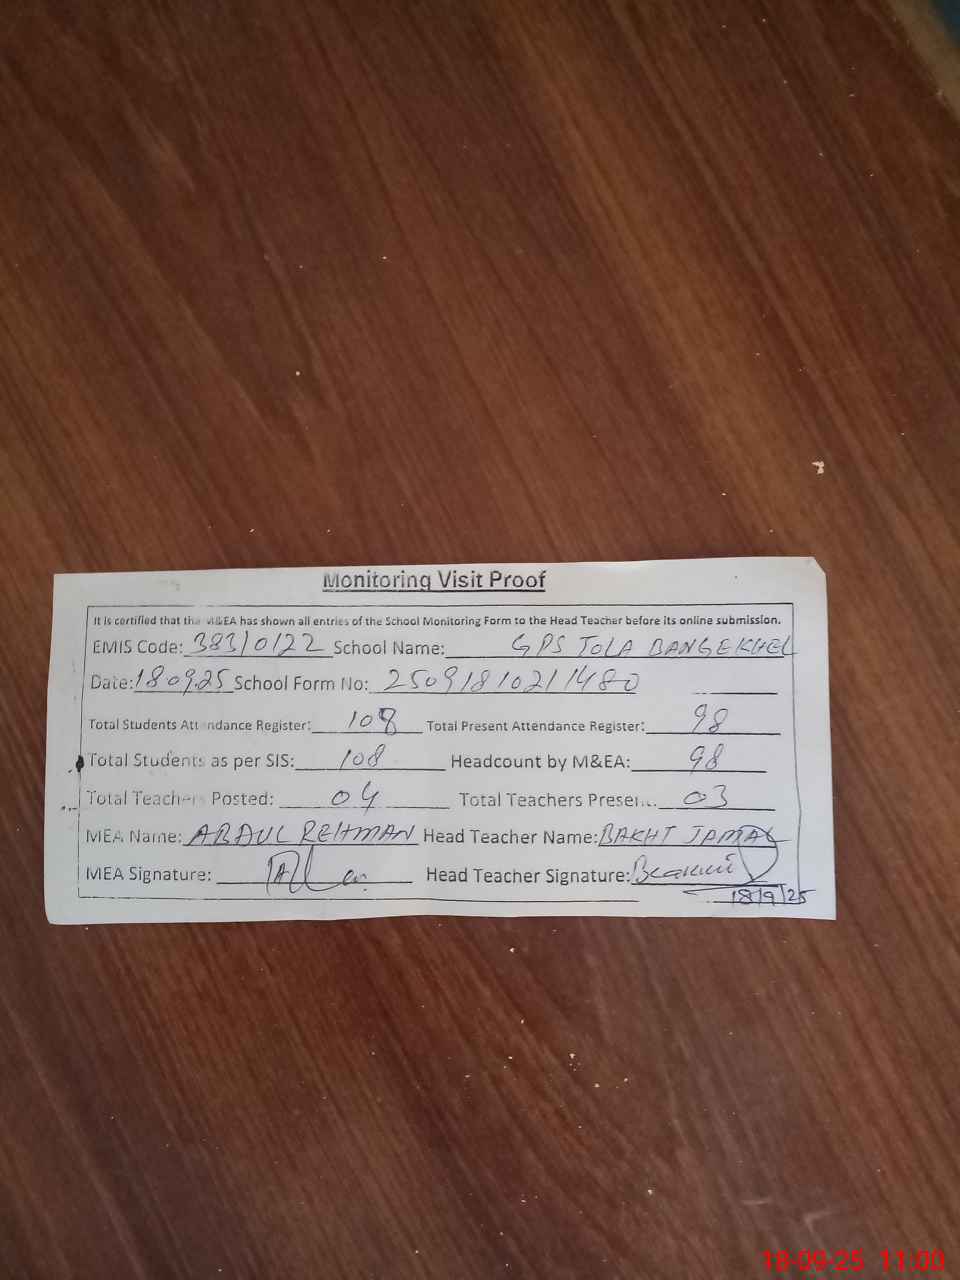 Monitoring Visit Proof
It is certified that the M&EA has shown all entries of the School Monitoring Form to the Head Teacher before its online submission.
EMIS Code: 38310122 School Name: GPS TOLA BANGEKHEL
Date: 180925 School Form No: 25091810211480
Total Students Attendance Register: 108 Total Present Attendance Register: 98
Total Students as per SIS: 108 Headcount by M&EA: 98
Total Teachers Posted: 04 Total Teachers Present: 03
MEA Name: ABDUL REHMAN Head Teacher Name: BAKHT JAMAL
MEA Signature: Head Teacher Signature:
18/9/25
18-09-25 11:00